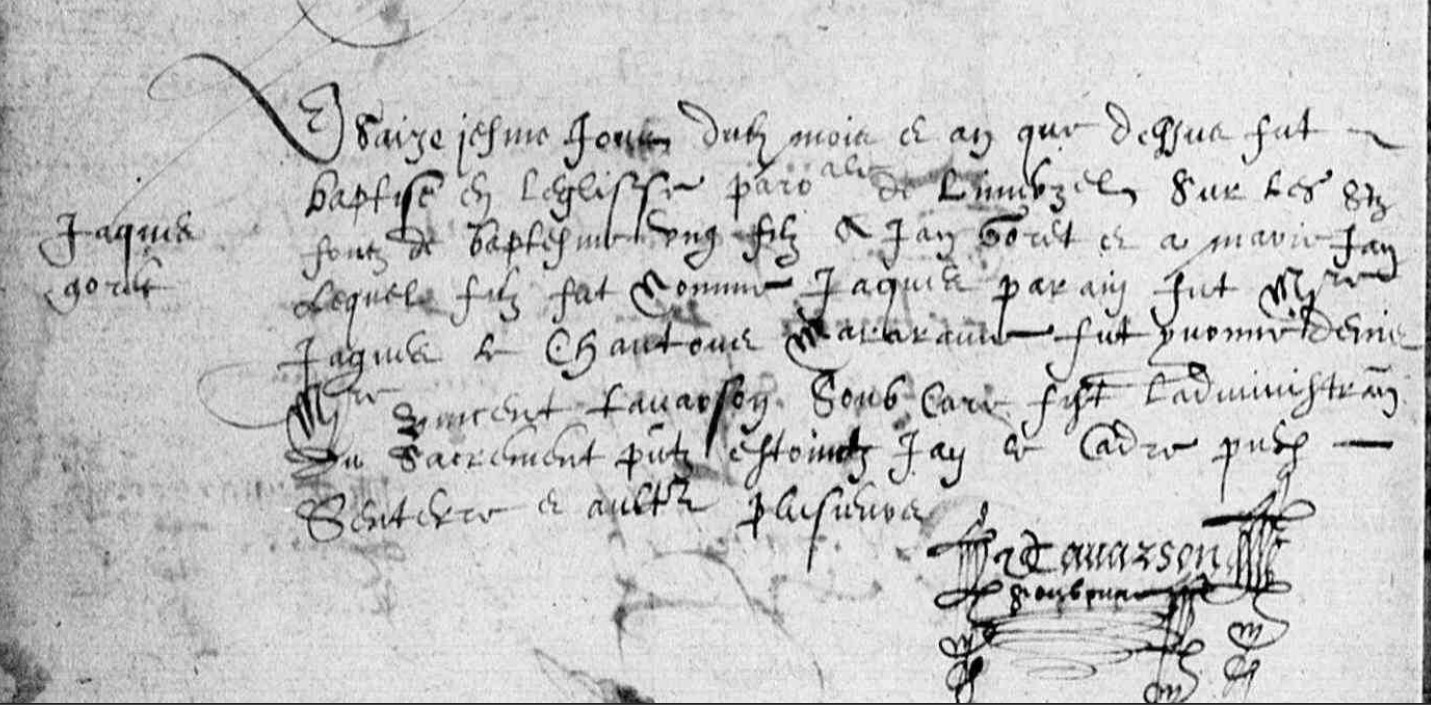 Jaques
goret
Le Saizejesme Jour dudit mois et an que dessus fut
baptisé en leglisse paroale de Limerzel sur les stz
fontz de baptesme ung filz a Jan Goret et a marie Jan
Lequel filz fut Nommé Jaques parain fut Mre
Jaques le Chantoux Mararaine fut yvonne denie
Mre vincent tavarson soub Curé fist Ladministraon
Du Sacrement pntz estointz Jan le Cadre
et aultres plusieurs
V Tavarson
soubcure